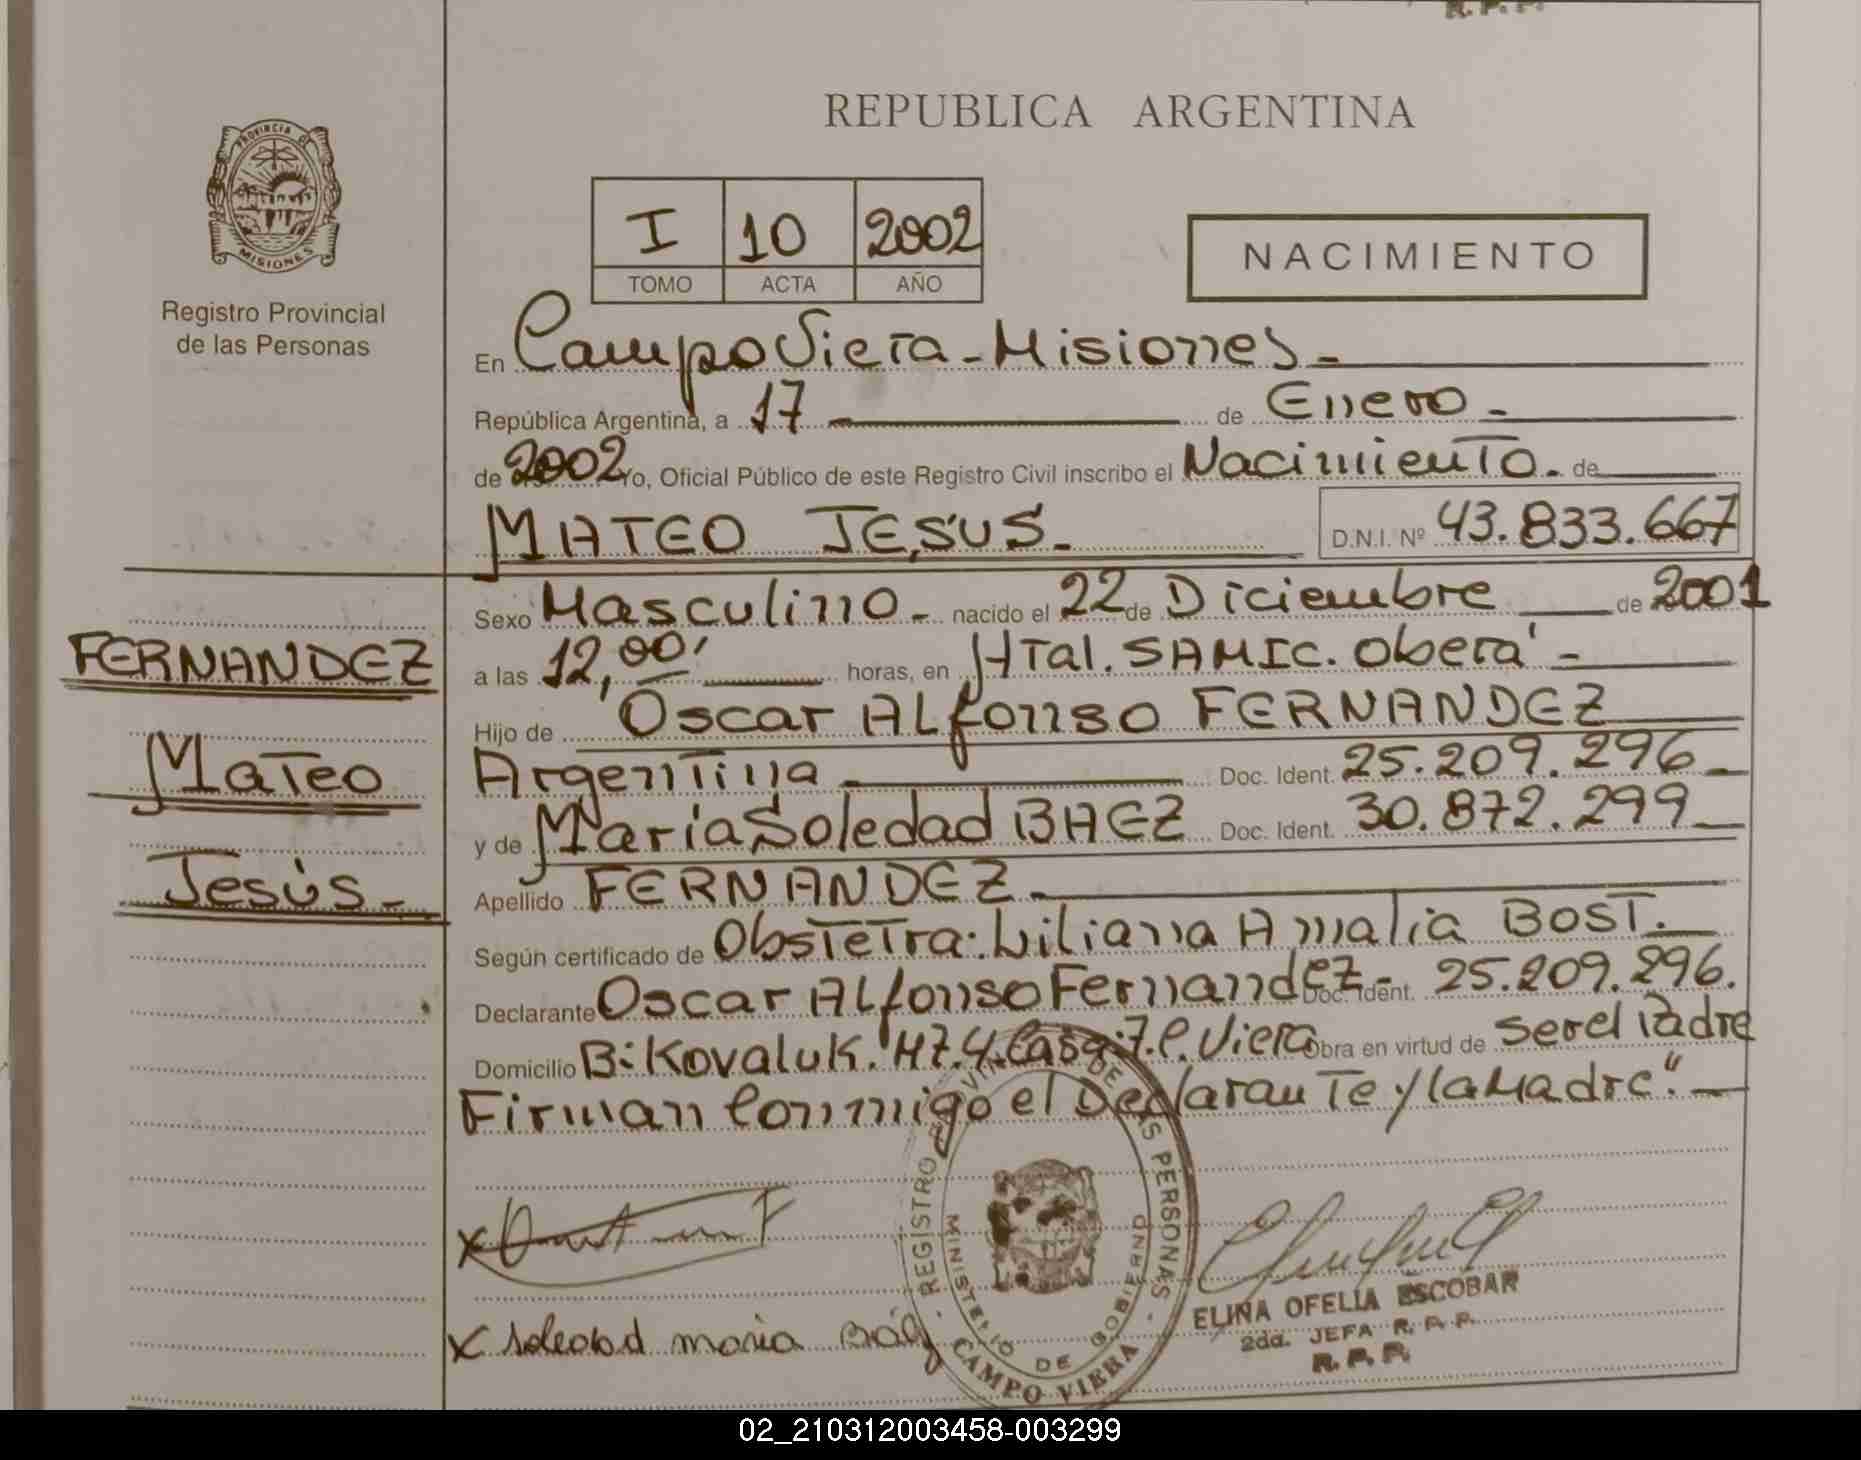 R. P. P.
REPUBLICA ARGENTINA
PROVINCIA DE
MISIONES
Registro Provincial
de las Personas
I 10 2002
TOMO ACTA AÑO
NACIMIENTO
En Campo Viera - Misiones -
República Argentina, a 17 de Enero -
de 2002 Yo, Oficial Público de este Registro Civil inscribo el Nacimiento. de
MATEO JESUS - D.N.I. Nº 43.833.667
Sexo Masculino - nacido el 22 de Diciembre de 2001
FERNANDEZ
a las 12,00' horas, en Htal. SAMIC. Oberá -
Hijo de Oscar Alfonso FERNANDEZ
Mateo
Argentina Doc. Ident. 25.209.296 -
y de María Soledad BAEZ Doc. Ident. 30.872.299 -
Jesús -
Apellido FERNANDEZ -
Según certificado de Obstetra: Liliana Amalia BOST.
Declarante Oscar Alfonso Fernandez - Doc. Ident. 25.209.296.
Domicilio B: Kovaluk. MZ.4. Casa:7. C. Viera Obra en virtud de ser el Padre
Firman Conmigo el Declarante y la Madre". -
REGISTRO PROVINCIAL DE LAS PERSONAS
MINISTERIO DE GOBIERNO
CAMPO VIERA
x
x soledad maria Báez
ELINA OFELIA ESCOBAR
2da. JEFA R. P. P.
R. P. P.
02_210312003458-003299